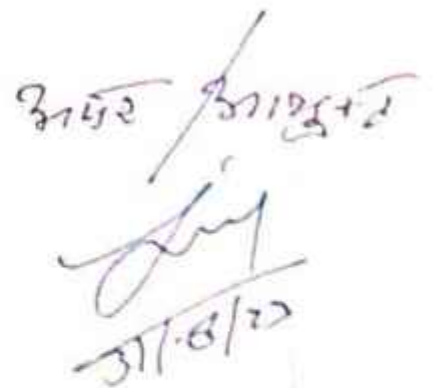 अपर / आयुक्त
31/8/23